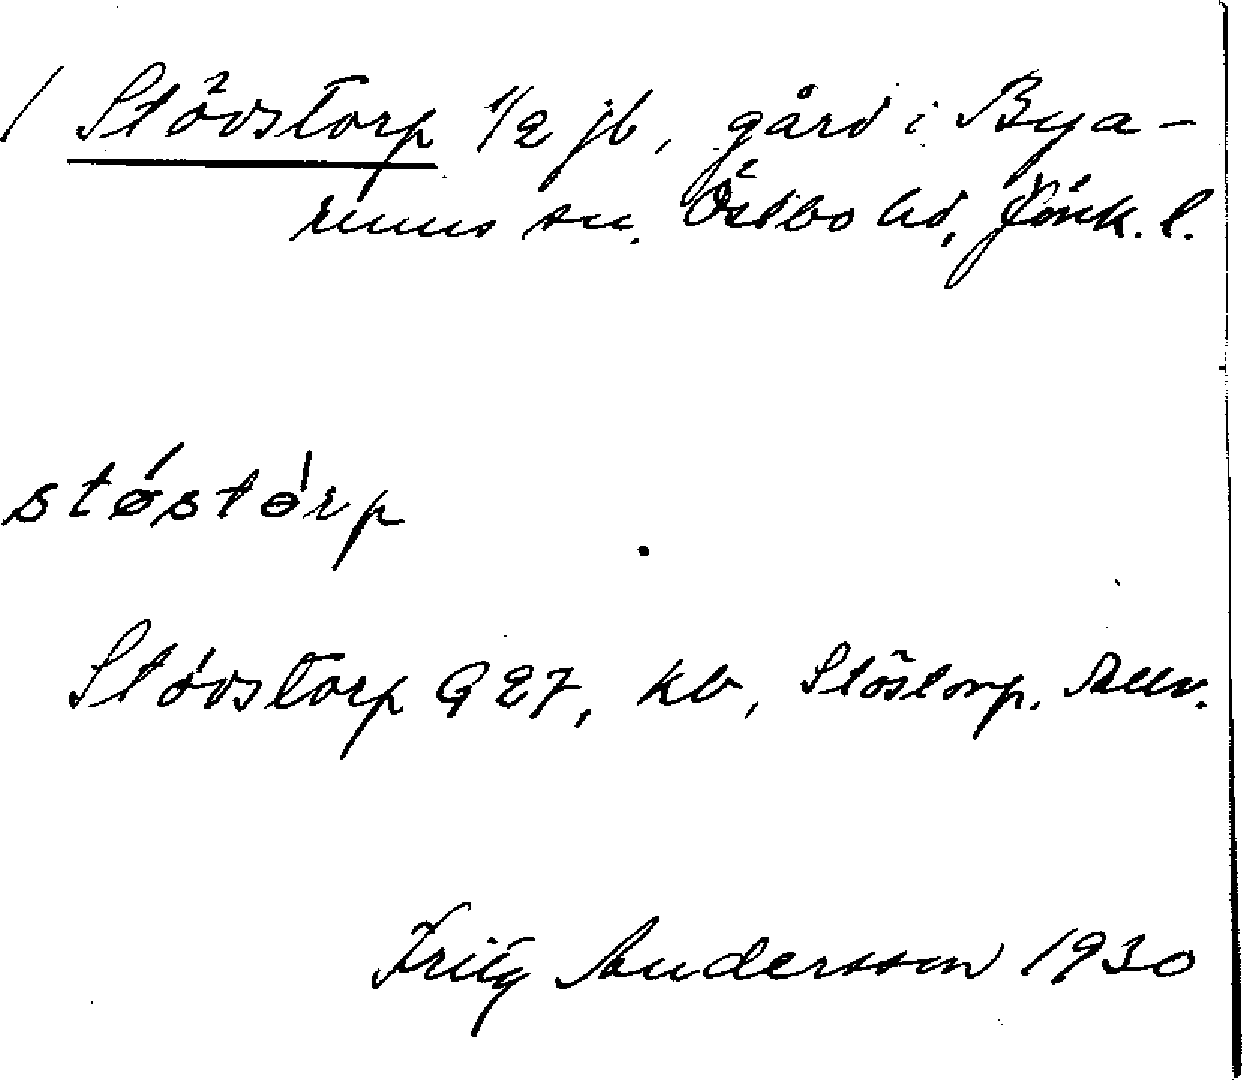 / Stövstorp 1/2 jb, gård i Bya-
rums sn. Östbo hd, Jönk. l.
støstòrp
Stövstorp G 27, kb, Stöstorp.
Fritz Andersson 1930